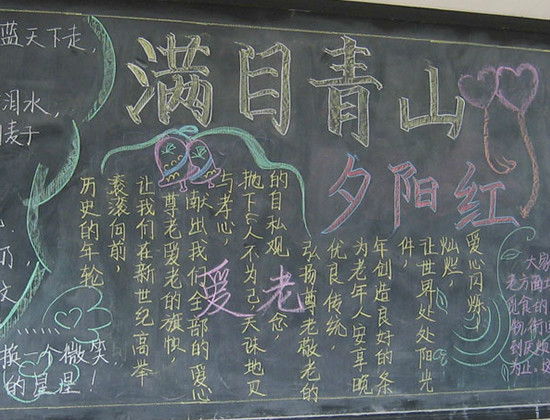 满目青山
夕阳红
爱老
蓝天下走,
泪水,
麦子
换一个微笑,
的星星!
历史的年轮
滚滚向前,
让我们在新世纪高举
尊老爱老的旗帜
献出我们全部的爱心
与孝心,
的自私观念,
弘扬尊老敬老的
优良传统,
为老年人安享晚
年创造良好的条
件,
让世界处处阳光
灿烂,
爱心闪烁!
大家